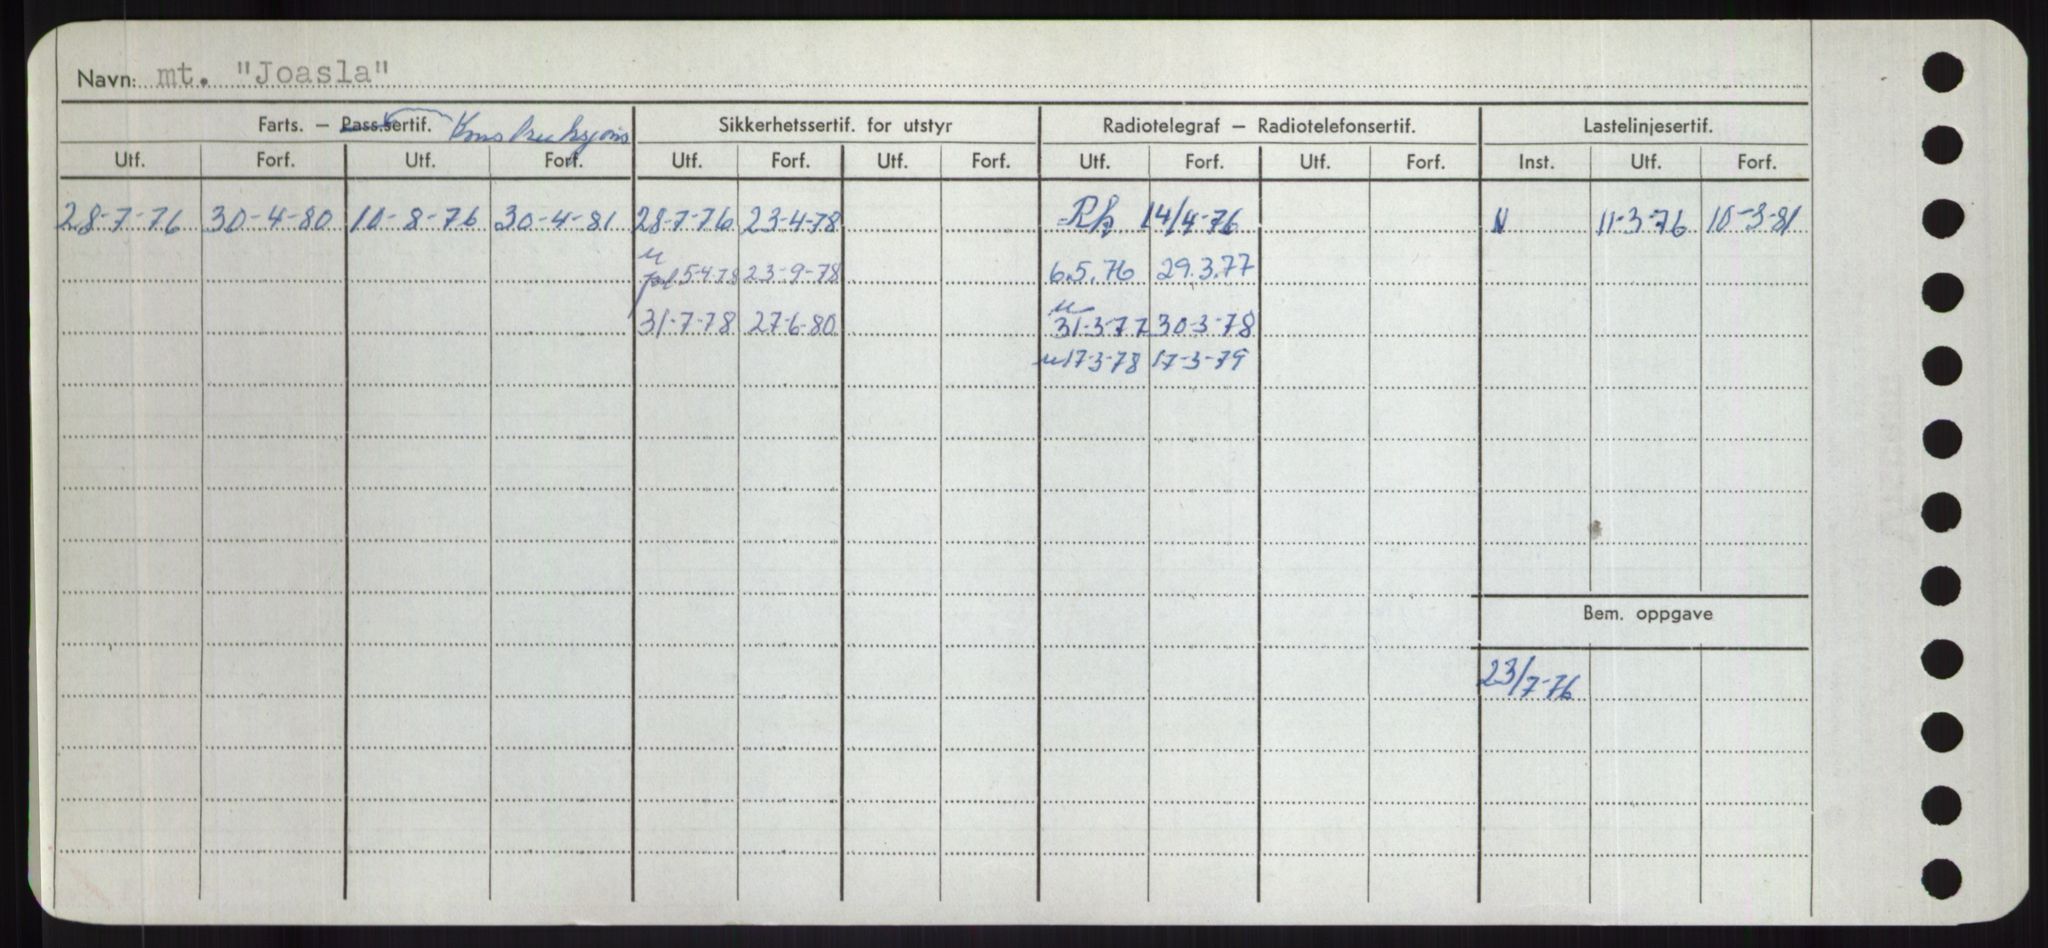 Navn: mt. "Joasla"
Farts. – Pass.sertif. Konstruksjons Sikkerhetssertif. for utstyr Radiotelegraf – Radiotelefonsertif. Lastelinjesertif.
Utf. Forf. Utf. Forf. Utf. Forf. Utf. Forf. Utf. Forf. Utf. Forf. Inst. Utf. Forf.
28-7-76 30-4-80 10-8-76 30-4-81 28-7-76 23-4-78 14/4-76 N 11-3-76 10-3-81
u
5-4-78 23-9-78 6.5.76 29.3.77
u
31-7-78 27-6-80 31-3-77 30-3-78
u 17-3-78 17-3-79
Bem. oppgave
23/7-76